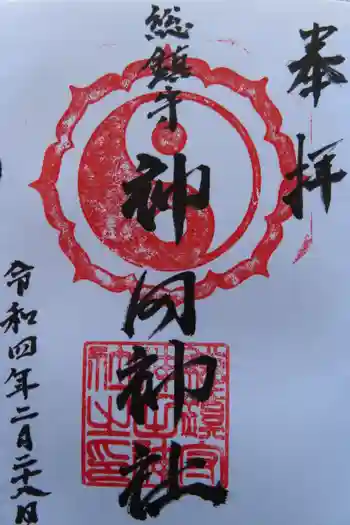 奉拝
総鎮守
神明神社
令和四年二月二十八日